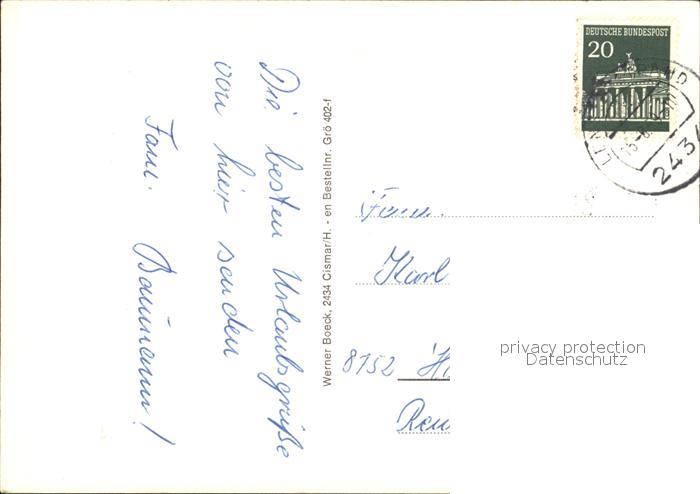 Die besten Urlaubsgrüße
von hier senden
Fam. Baumann!
Werner Boeck, 2434 Cismar/H. - en Bestellnr. Grö 402-f
DEUTSCHE BUNDESPOST
20
2434
Fam.
Karl
8752
privacy protection
Datenschutz